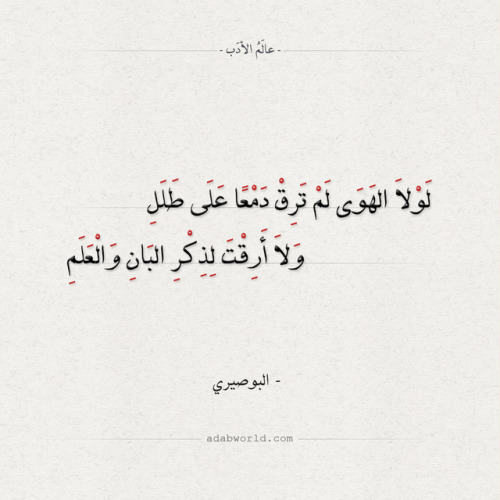 - عالَمُ الأدَب -
لَوْلاَ الهَوَى لَمْ تَرِقْ دَمْعًا عَلَى طَلَلِ
وَلاَ أَرِقْتَ لِذِكْرِ البَانِ وَالْعَلَمِ
- البوصيري
adabworld.com